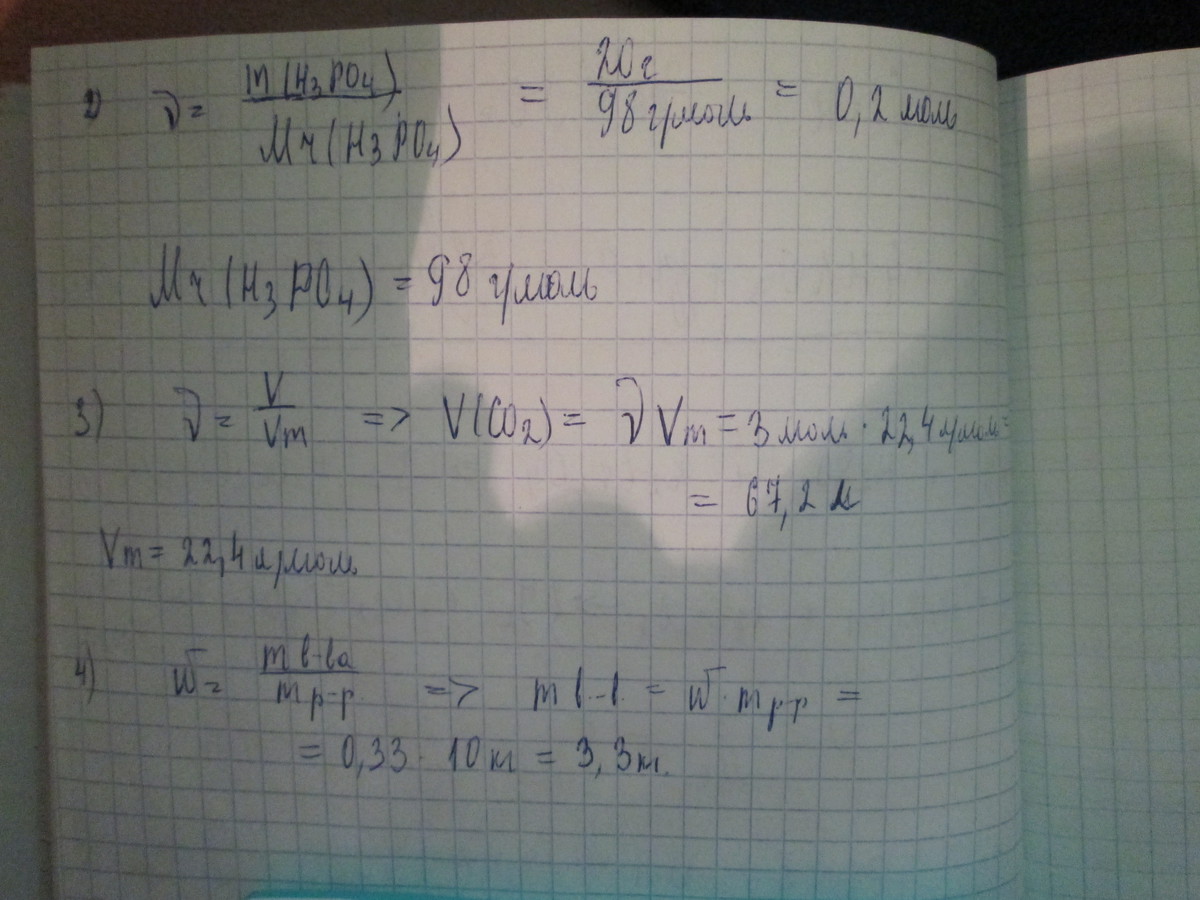 2) ν = m(H3PO4) / Mr(H3PO4) = 20г / 98 г/моль = 0,2 моль
Mr(H3PO4) = 98 г/моль
3) ν = V / Vm => V(CO2) = ν Vm = 3 моль · 22,4 л/моль =
= 67,2 л
Vm = 22,4 л/моль
4) W = m в-ва / m р-р => m в-в = W · m р-р =
= 0,33 · 10 кг = 3,3 кг.